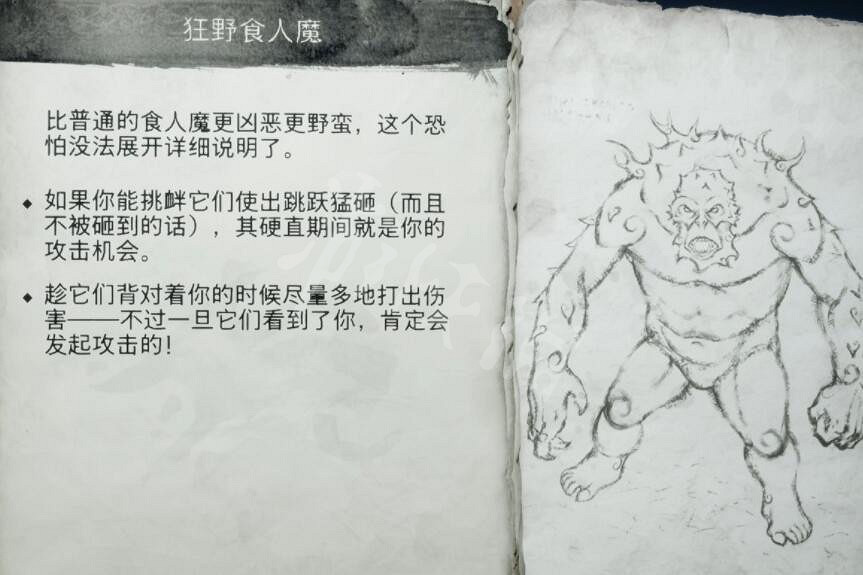 狂野食人魔
比普通的食人魔更凶恶更野蛮，这个恐
怕没法展开详细说明了。
◆ 如果你能挑衅它们使出跳跃猛砸（而且
不被砸到的话），其硬直期间就是你的
攻击机会。
◆ 趁它们背对着你的时候尽量多地打出伤
害——不过一旦它们看到了你，肯定会
发起攻击的！